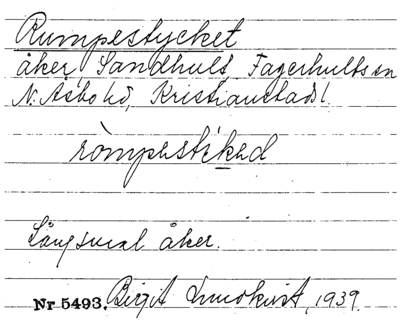 Rumpestycket
åker, Sandhult, Fagerhults sn
N. Åsbo hd, Kristianstads l.
römpestikəd
Långsmal åker.
Nr 5493. Birgit Lundkvist, 1939.